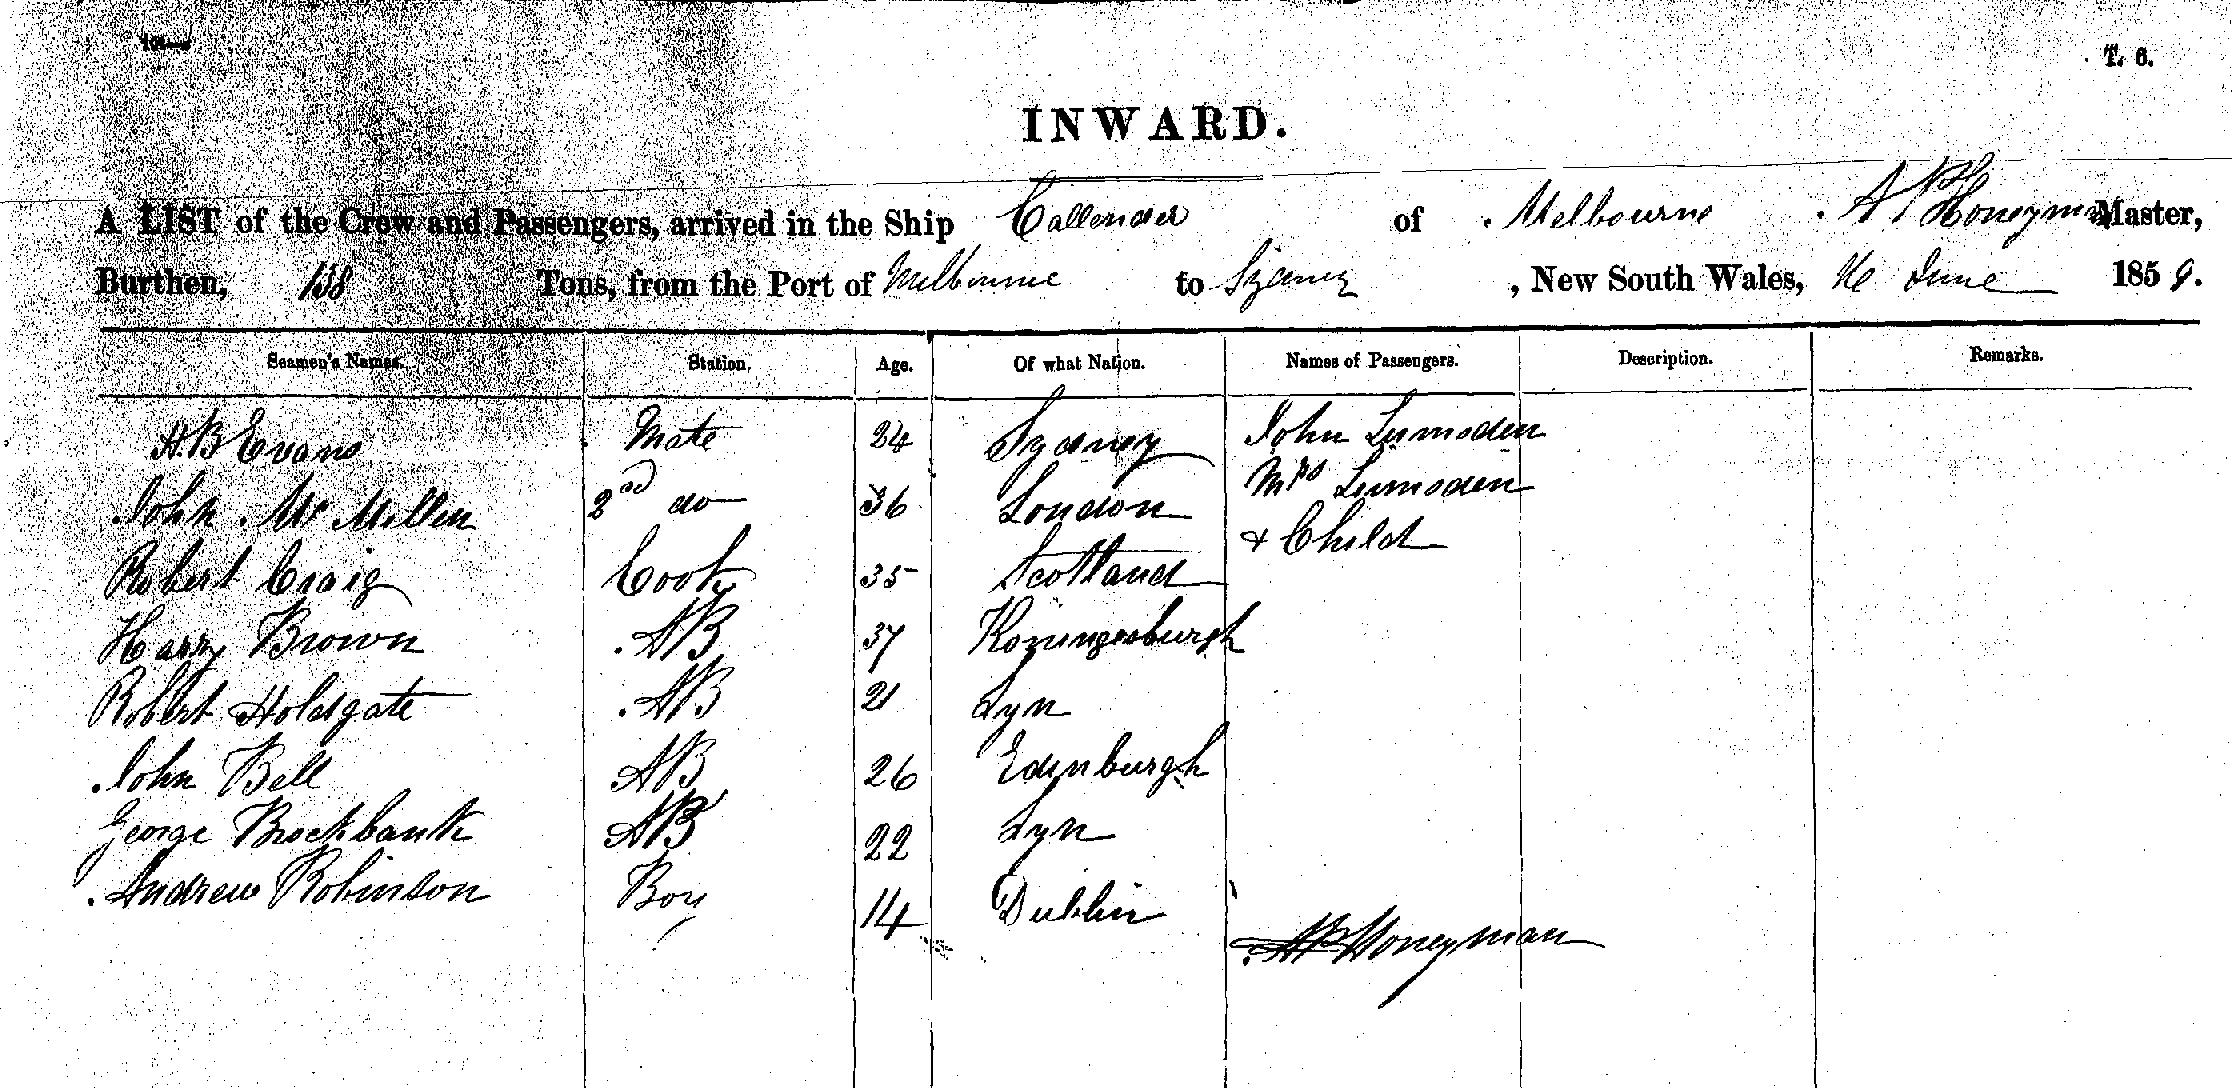 T. 6.
INWARD.
A LIST of the Crew and Passengers, arrived in the Ship Callender of Melbourne A P Honeyman Master,
Burthen, 138 Tons, from the Port of Melbourne to Sydney, New South Wales, 16 June 1859.
Seamen's Names. Station. Age. Of what Nation. Names of Passengers. Description. Remarks.
A B Evans Mate 24 Sydney John Lumsden
John Mc Millen 2nd do 36 London Mrs Lumsden
& Child
Robert Craig Cook 35 Scotland
Harry Brown AB 37 Koningesburgh
Robert Holdgate AB 21 Lyn
John Bell AB 26 Edinburgh
George Brockbank AB 22 Lyn
Andrew Robinson Boy 14 Dublin
AP Honeyman